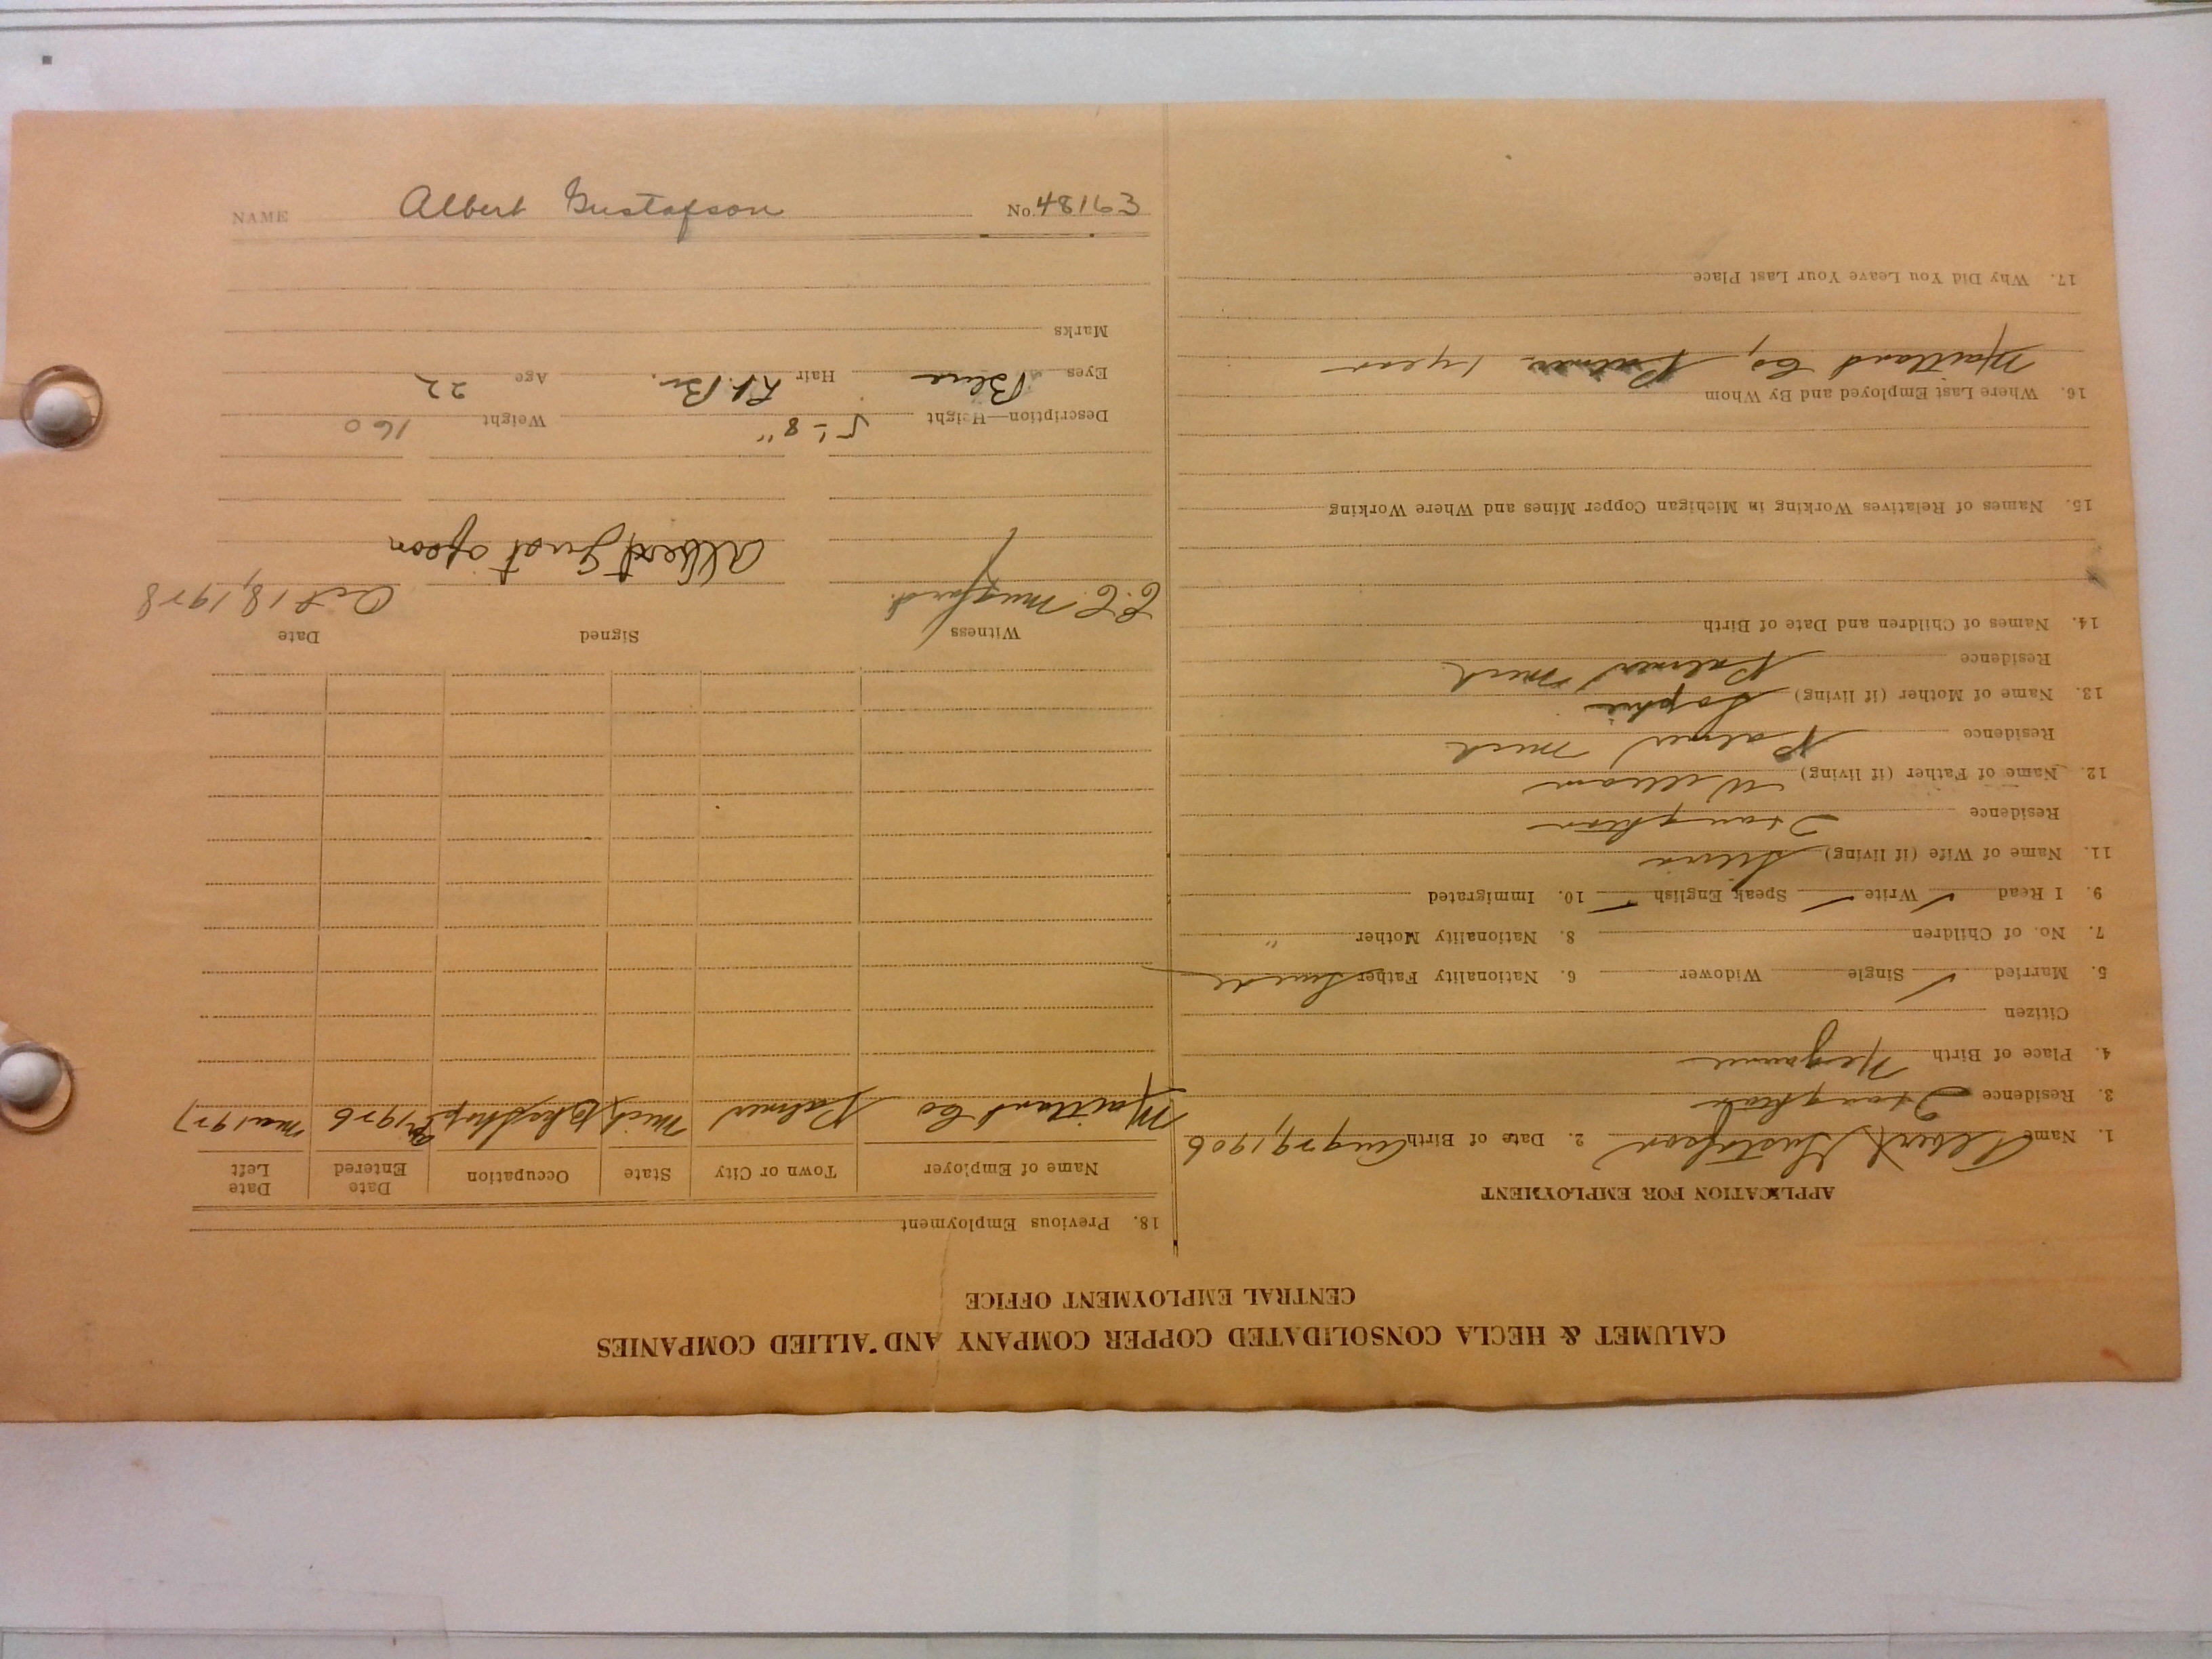 NAME Albert Gustafson No. 48163
CALUMET & HECLA CONSOLIDATED COPPER COMPANY AND ALLIED COMPANIES
CENTRAL EMPLOYMENT OFFICE
APPLICATION FOR EMPLOYMENT
1. Name Albert Gustafson 2. Date of Birth Aug 29, 1906
3. Residence
4. Place of Birth Negaunee
Citizen
5. Married ✓ Single Widower 6. Nationality Father Swede
7. No. of Children 8. Nationality Mother "
9. I Read ✓ Write ✓ Speak English ✓ 10. Immigrated
11. Name of Wife (if living)
Residence
12. Name of Father (if living) William
Residence Palmer Mich
13. Name of Mother (if living) Sophia
Residence Palmer Mich
14. Names of Children and Date of Birth
15. Names of Relatives Working in Michigan Copper Mines and Where Working
16. Where Last Employed and By Whom
Maitland Co, Palmer 1 year
17. Why Did You Leave Your Last Place
18. Previous Employment
Name of Employer Town or City State Occupation Date Entered Date Left
Maitland Co Palmer Mich 1926 1927
Witness Signed Date
E.C. Mugford Albert Gustafson Oct 18, 1928
Description—Height 5' 8" Weight 160
Eyes Blue Hair Lt. Br. Age 22
Marks